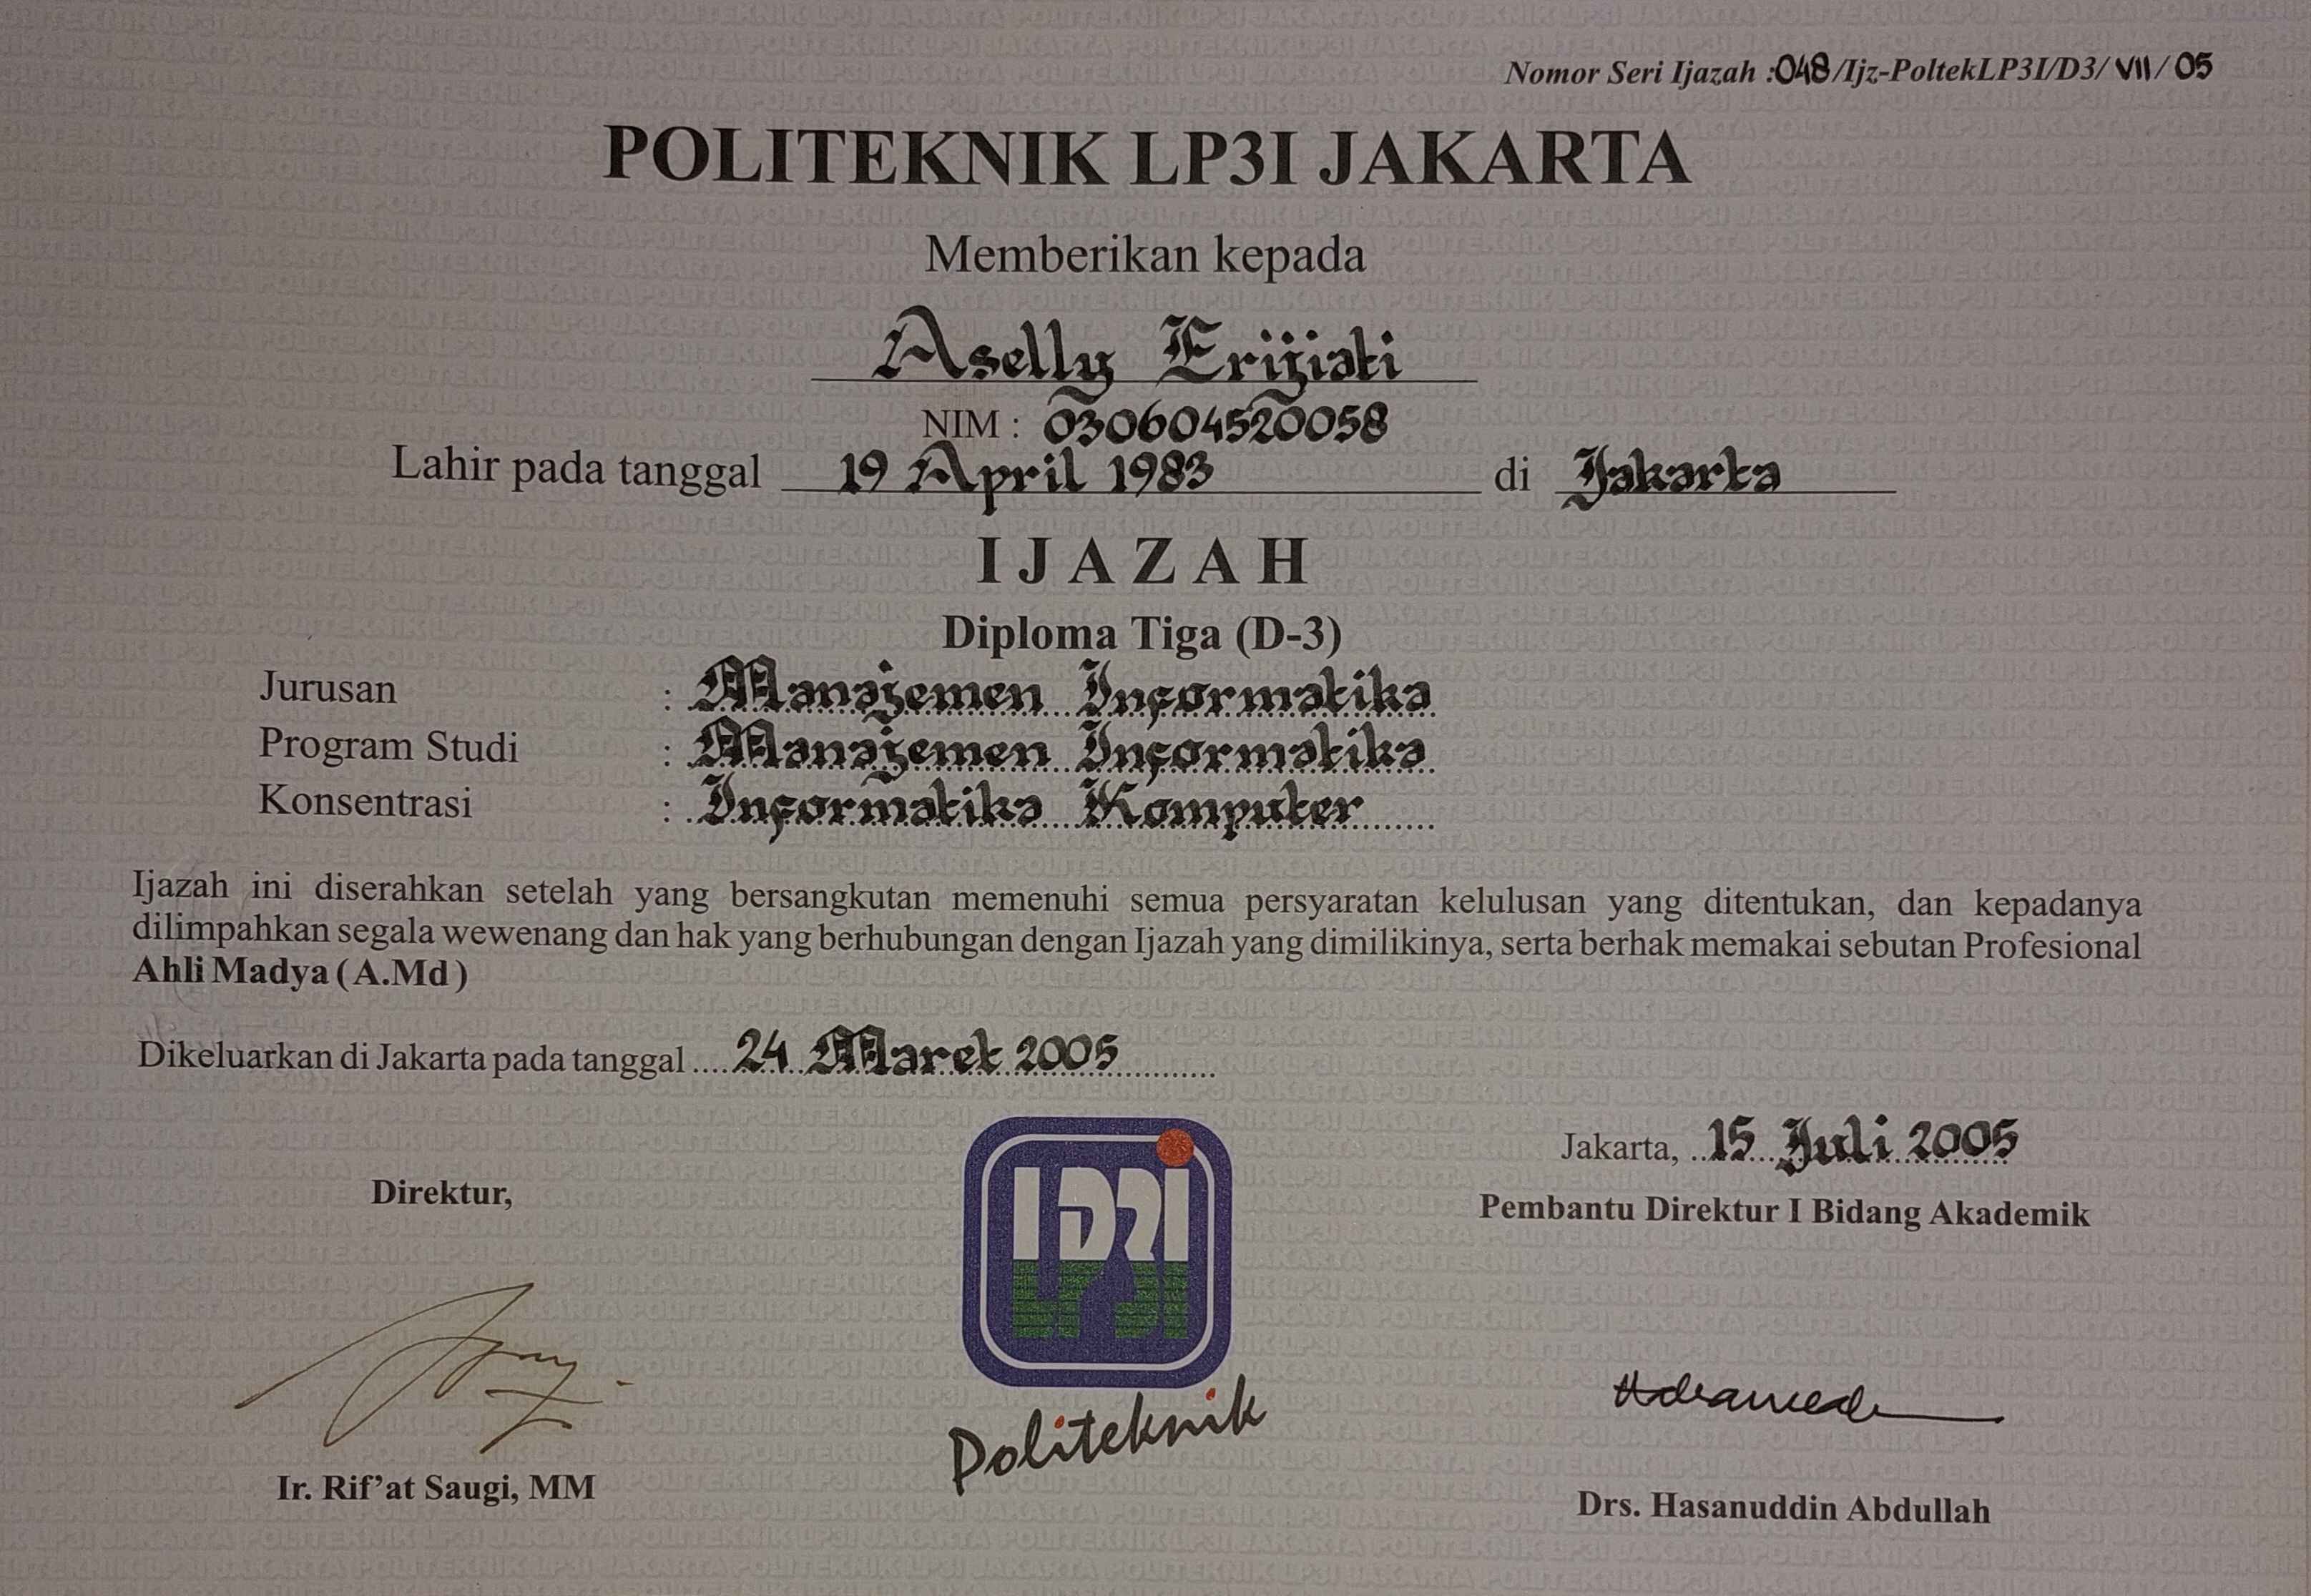 Nomor Seri Ijazah : 048/Ijz-PoltekLP3I/D3/ VII / 05
POLITEKNIK LP3I JAKARTA
Memberikan kepada
Aselly Erijiati
NIM : 030604520058
Lahir pada tanggal 19 April 1983 di Jakarta
IJAZAH
Diploma Tiga (D-3)
Jurusan : Manajemen Informatika
Program Studi : Manajemen Informatika
Konsentrasi : Informatika Komputer
Ijazah ini diserahkan setelah yang bersangkutan memenuhi semua persyaratan kelulusan yang ditentukan, dan kepadanya
dilimpahkan segala wewenang dan hak yang berhubungan dengan Ijazah yang dimilikinya, serta berhak memakai sebutan Profesional
Ahli Madya ( A.Md )
Dikeluarkan di Jakarta pada tanggal .... 24 Maret 2005
Jakarta, 15 Juli 2005
Direktur,
Pembantu Direktur I Bidang Akademik
LP3I
Politeknik
Ir. Rif'at Saugi, MM
Drs. Hasanuddin Abdullah